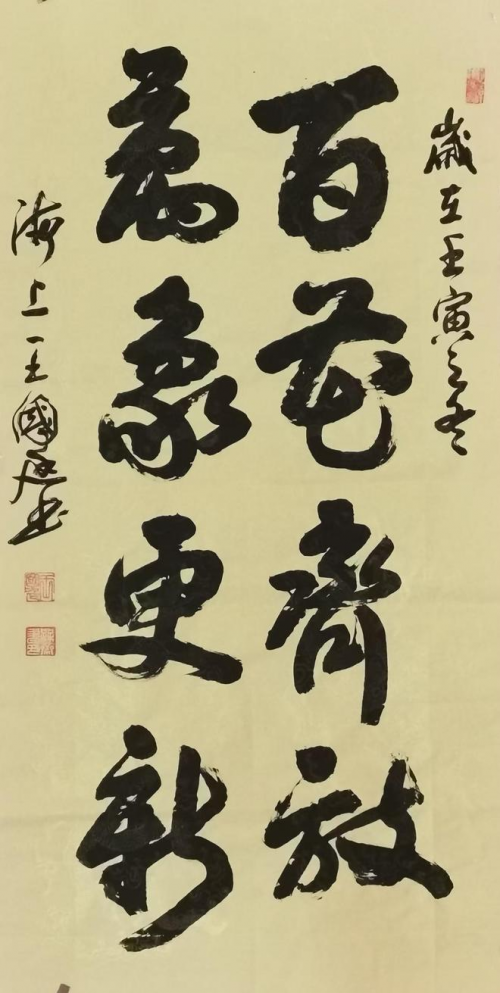 歲在壬寅之冬
百花齊放
萬象更新
海上王國庭书